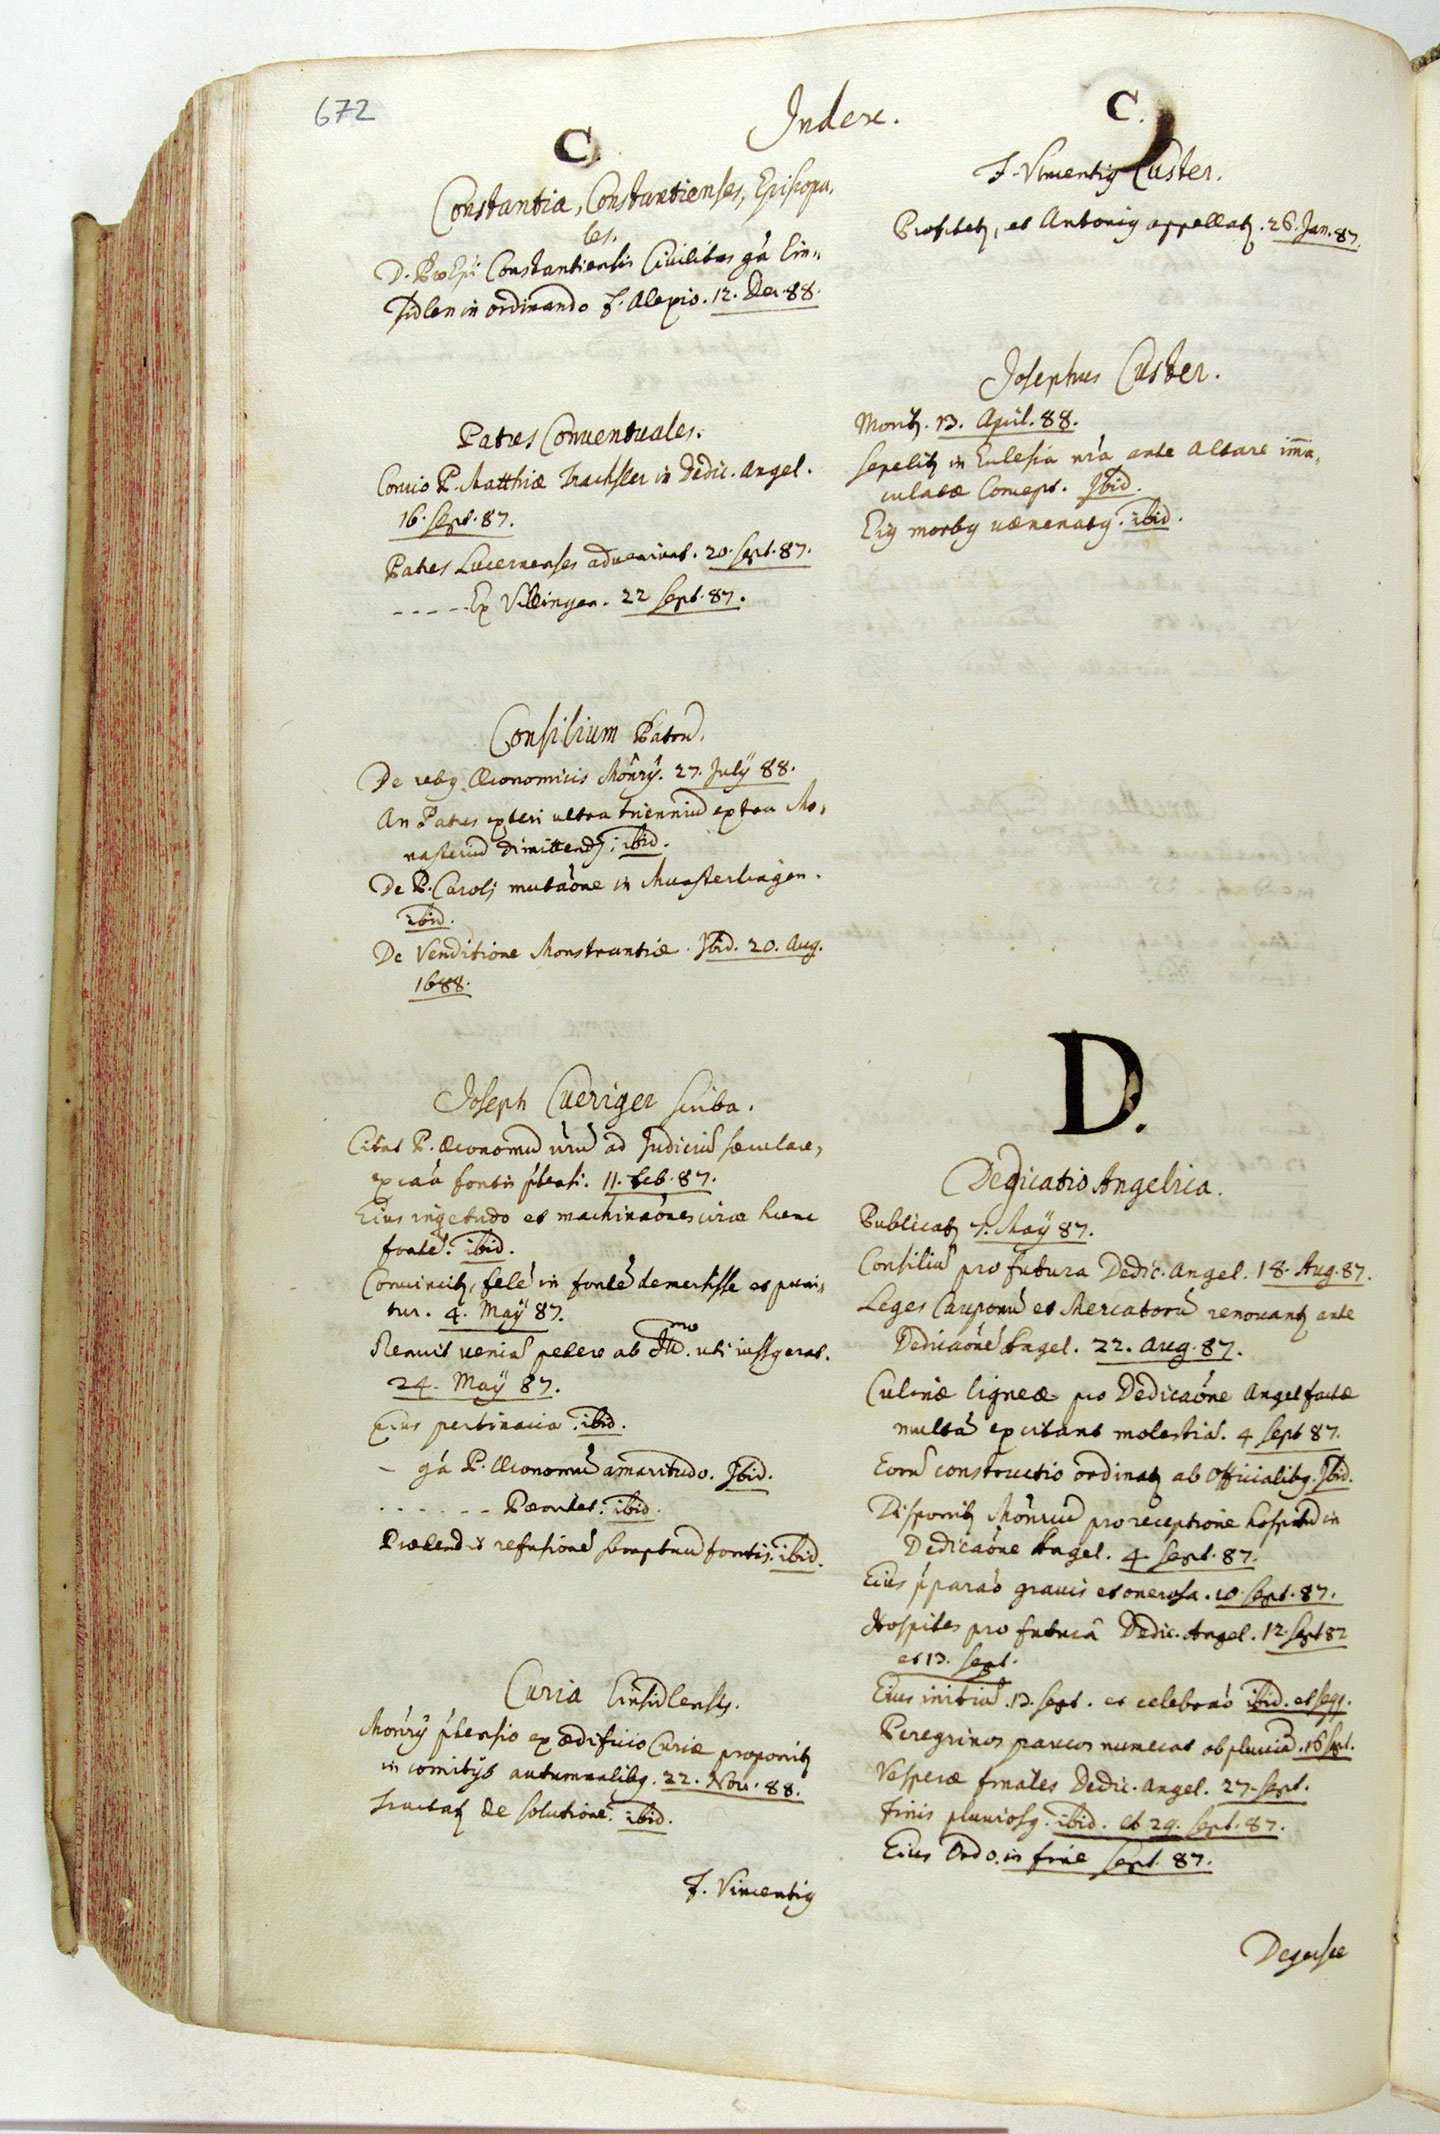 672
Index.
C.
Constantia, Constantienses, Episcopa,
les.
D. ProEpi Constantiensis Civilitas gá Ein,,
sidlen in ordinando F. Alexio. 12. Dec. 88.
Patres Conventuales.
Concio P. Matthiæ Trachsler in Dedic. Angel.
16. Sept. 87.
Patres Lucernenses adveniunt. 20. Sept. 87.
- - - - - Ex Villingen. 22 Sept. 87.
Consilium Patrũ.
De rebq Œconomicis Mõnrÿ. 27. Julÿ 88.
An Patres exteri ultra trienniũ extra Mo,
nasteriũ dimittendj. ibid.
De P. Caroli mutaõne in Munsterlingen.
ibid.
De Venditione Monstrantiæ. Ibid. 20. Aug.
1688.
Joseph Cueriger scriba.
Citat P. Œconomũ nrũ ad Judiciũ sæculare,
ex caã fontis 11. Feb. 87.
Eius et machinaões circa hunc
fontẽ. ibid.
Convincitq felẽ in fontẽ demersisse et puni,
tur. 4. Maÿ 87.
Renuit veniã petere ab Rmo. uti iussq erat.
24. Maÿ 87.
Eius pertinacia. ibid.
- gá P. Œconomũ amaritudo. Ibid.
- - - - - - ibid.
Prætendit refusionẽ sumptuũ fontis. ibid.
Curia Einsidlensis.
Mõnrÿ ex ædificio Curiæ proponitq
in comitÿs autumnalibq. 22. Nov. 88.
Tractatq de solutione. ibid.
F. Vincentiq
C.
F. Vincentiq Custer.
Profitetq, et Antoniq appellatq. 26. Jan. 87.
Josephus Custer.
Moritq. 13. April. 88.
Sepelitq in Eclesia nrã ante Altare imã,
culatæ Concept. Ibid.
Eiq morbq vænenatq. ibid.
D.
Dedicatio Angelica.
Publicatq 7. Maÿ 87.
Consiliũ pro futura Dedic. Angel. 18. Aug. 87.
Leges Cauponũ et Mercatorũ renovantq ante
Dedicaõnẽ Angel. 22. Aug. 87.
Culinæ ligneæ pro Dedicaõne Angel factæ
multã excitant molestiã. 4 Sept 87.
Eorũ constructio ordinatq ab Officialibq. Ibid.
Disponitq Mõnriũ pro receptione hospitũ in
Dedicaõne Angel. 4. Sept. 87.
Eius pparaõ gravis et onerosa. 10. Sept. 87.
Hospites pro futurâ Dedic. Angel. 12. Sept 87
et 13. Sept.
Eius initiũ. 13. Sept. et celebraõ ibid. et seqq.
Peregrinos paucos numerat ob pluviã. 16 Sept.
Vesperæ finales Dedic. Angel. 27. Sept.
Finis pluviosq. ibid. et 29. Sept. 87.
Eius Ordo. in fine Sept. 87.
Degersee